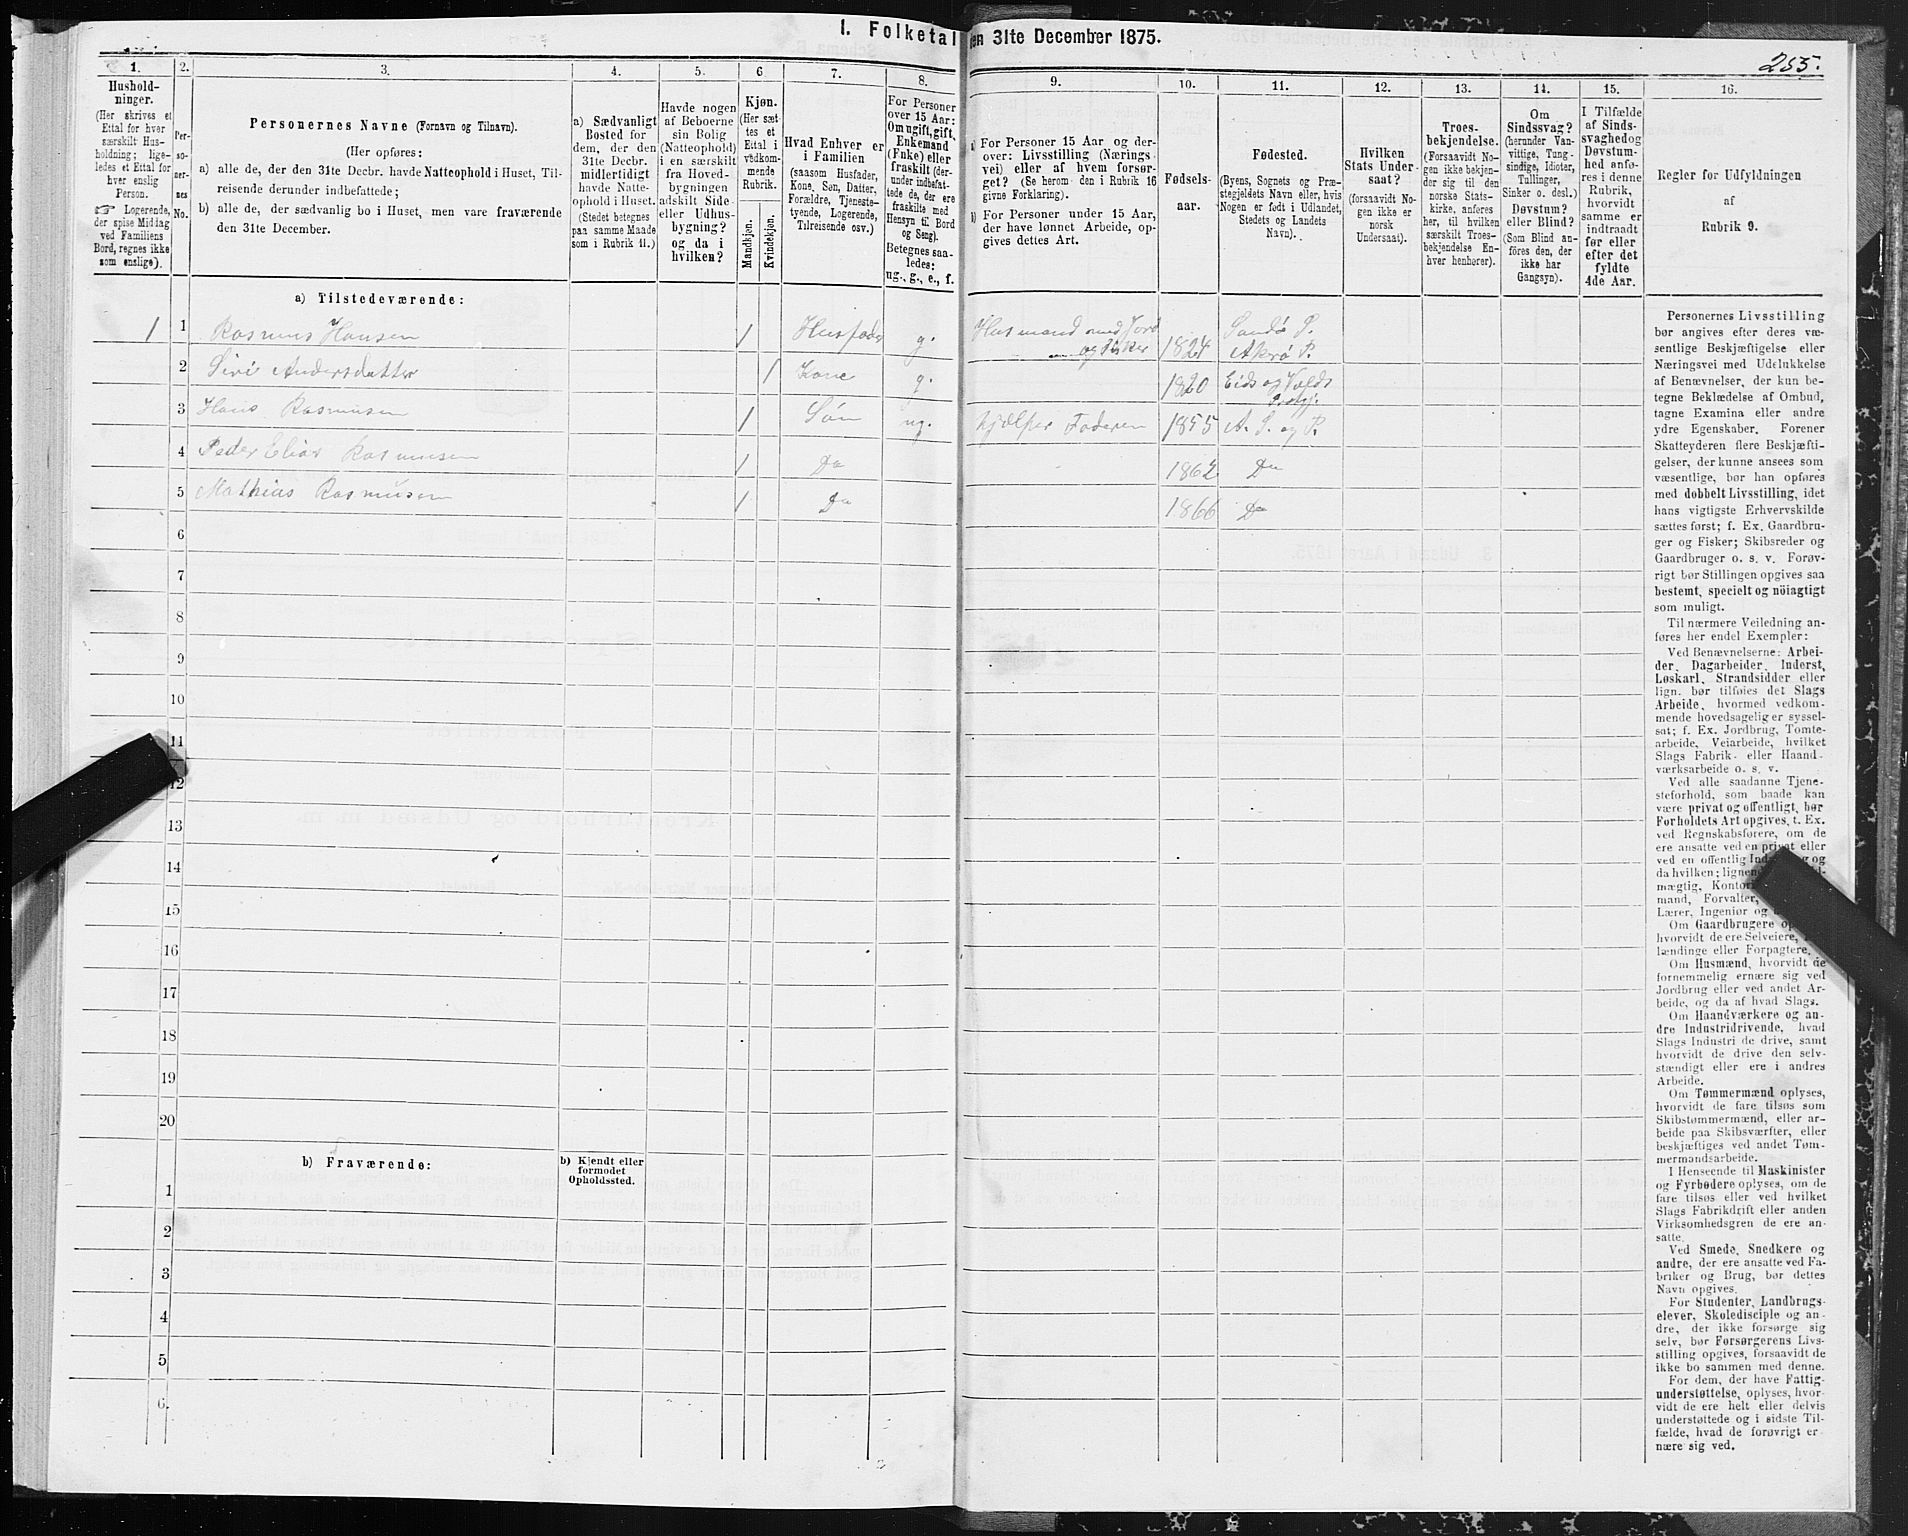 1. Folketal
den 31te December 1875.
255.
1.
2.
3.
4.
5.
6
7.
8.
9.
10.
11.
12.
13.
14.
15.
16.
Hushold-
ninger.
(Her skrives et
Ettal for hver
særskilt Hus-
holdning; lige-
ledes et Ettal for
hver enslig
Person.
☞ Logerende,
der spise Middag
ved Familiens
Bord, regnes ikke
som enslige).
Per-
so-
ner-
nes
No.
Personernes Navne (Fornavn og Tilnavn).
(Her opføres:
a) alle de, der den 31te Decbr. havde Natteophold i Huset, Til-
reisende derunder indbefattede;
b) alle de, der sædvanlig bo i Huset, men vare fraværende
den 31te December.
a) Sædvanligt
Bosted for
dem, der den
31te Decbr.
midlertidigt
havde Natte-
ophold i Huset.
(Stedet betegnes
paa samme Maade
som i Rubrik 11.)
Havde nogen
af Beboerne
sin Bolig
(Natteophold)
i en særskilt
fra Hoved-
bygningen
adskilt Side-
eller Udhus-
bygning?
og da i
hvilken?
Kjøn.
(Her sæt-
tes et
Ettal i
vedkom-
mende
Rubrik.
Mandkjøn.
Kvindekjøn.
Hvad Enhver er
i Familien
(saasom Husfader,
Kone, Søn, Datter,
Forældre, Tjeneste-
tyende, Logerende,
Tilreisende osv.)
For Personer
over 15 Aar:
Om ugift, gift,
Enkemand
(Enke) eller
fraskilt (der-
under indbefat-
tede de, der ere
fraskilte med
Hensyn til Bord
og Seng).
Betegnes saa-
ledes:
ug., g., e., f.
a) For Personer 15 Aar og der-
over: Livsstilling (Nærings-
vei) eller af hvem forsør-
get? (Se herom den i Rubrik 16
givne Forklaring).
b) For Personer under 15 Aar,
der have lønnet Arbeide, op-
gives dettes Art.
Fødsels-
aar.
Fødested.
(Byens, Sognets og Præ-
stegjeldets Navn eller, hvis
Nogen er født i Udlandet,
Stedets og Landets
Navn).
Hvilken
Stats Under-
saat?
(forsaavidt No-
gen ikke er
norsk
Undersaat).
Troes-
bekjendelse.
(Forsaavidt No-
gen ikke bekjen-
der sig til den
norske Stats-
kirke, anføres
her, til hvilken
særskilt Troes-
bekjendelse En-
hver henhører).
Om
Sindssvag?
(herunder Van-
vittige, Tung-
sindige, Idioter,
Tullinger,
Sinker o. desl.)
Døvstum?
eller Blind?
(Som Blind an-
føres den, der
ikke har
Gangsyn).
I Tilfælde
af Sinds-
svaghed og
Døvstum-
hed anfø-
res i denne
Rubrik,
hvorvidt
samme er
indtraadt
før eller
efter det
fyldte
4de Aar.
Regler for Udfyldningen
af
Rubrik 9.
a) Tilstedeværende:
1 1 Rasmus Hansen 1 Husfader g. Husmand med Jord og Fisker 1824 Sandø S. Akrø P.
2 Siri Andersdatter 1 Kone g. 1820 Eids og Volds Prstgj.
3 Hans Rasmusen 1 Søn ug. hjælper Faderen 1855 A. S. og P.
4 Peder Elias Rasmusen 1 Do 1862 Do
5 Mathias Rasmusen 1 Do 1866 Do
6
7
8
9
10
11
12
13
14
15
16
17
18
19
20
b) Fraværende:
b) Kjendt eller
formodet
Opholdssted.
1
2
3
4
5
6.
Personernes Livsstilling
bør angives efter deres væ-
sentlige Beskjæftigelse eller
Næringsvei med Udelukkelse
af Benævnelser, der kun be-
tegne Beklædelse af Ombud,
tagne Examina eller andre
ydre Egenskaber. Forener
Skatteyderen flere Beskjæfti-
gelser, der kunne ansees som
væsentlige, bør han opføres
med dobbelt Livsstilling, idet
hans vigtigste Erhvervskilde
sættes først; f. Ex. Gaardbru-
ger og Fisker; Skibsreder og
Gaardbruger o. s. v. Forøv-
rigt bør Stillingen opgives saa
bestemt, specielt og nöiagtigt
som muligt.
Til nærmere Veiledning an-
føres her endel Exempler:
Ved Benævnelserne: Arbei-
der, Dagarbeider, Inderst,
Løskarl, Strandsidder eller
lign. bør tilføies det Slags
Arbeide, hvormed vedkom-
mende hovedsagelig er syssel-
sat; f. Ex. Jordbrug, Tomte-
arbeide, Veiarbeide, hvilket
Slags Fabrik- eller Haand-
værksarbeide o. s. v.
Ved alle saadanne Tjene-
steforhold, som baade kan
være privat og offentligt, bør
Forholdets Art opgives, t. Ex.
ved Regnskabsførere, om de
ere ansatte ved en privat eller
ved en offentlig Ind og
da hvilken; lignen
mægtig, Kontor
mand, Forvalter,
Lærer, Ingeniør og
Om Gaardbrugere
hvorvidt de ere Selveiere,
lændinge eller Forpagtere.
Om Husmænd, hvorvidt de
fornemmelig ernære sig ved
Jordbrug eller ved andet Ar-
beide, og da af hvad Slags.
Om Haandværkere og an-
dre Industridrivende, hvad
Slags Industri de drive, samt
hvorvidt de drive den selv-
stændigt eller ere i andres
Arbeide.
Om Tømmermænd oplyses,
hvorvidt de fare tilsøs som
Skibstømmermænd, eller ar-
beide paa Skibsværfter, eller
beskjæftiges ved andet Tøm-
mermandsarbeide.
I Henseende til Maskinister
og Fyrbødere oplyses, om de
fare tilsøs eller ved hvilket
Slags Fabrikdrift eller anden
Virksomhedsgren de ere an-
satte.
Ved Smede, Snedkere og
andre, der ere ansatte ved Fa-
briker og Brug, bør dettes
Navn opgives.
For Studenter, Landbrugs-
elever, Skoledisciple og an-
dre, der ikke forsørge sig
selv, bør Forsørgerens Livs-
stilling opgives, forsaavidt de
ikke bo sammen med denne.
For dem, der have Fattig-
understøttelse, oplyses, hvor-
vidt de ere helt eller delvis
understøttede og i sidste Til-
fælde, hvad de forøvrigt er-
nære sig ved.